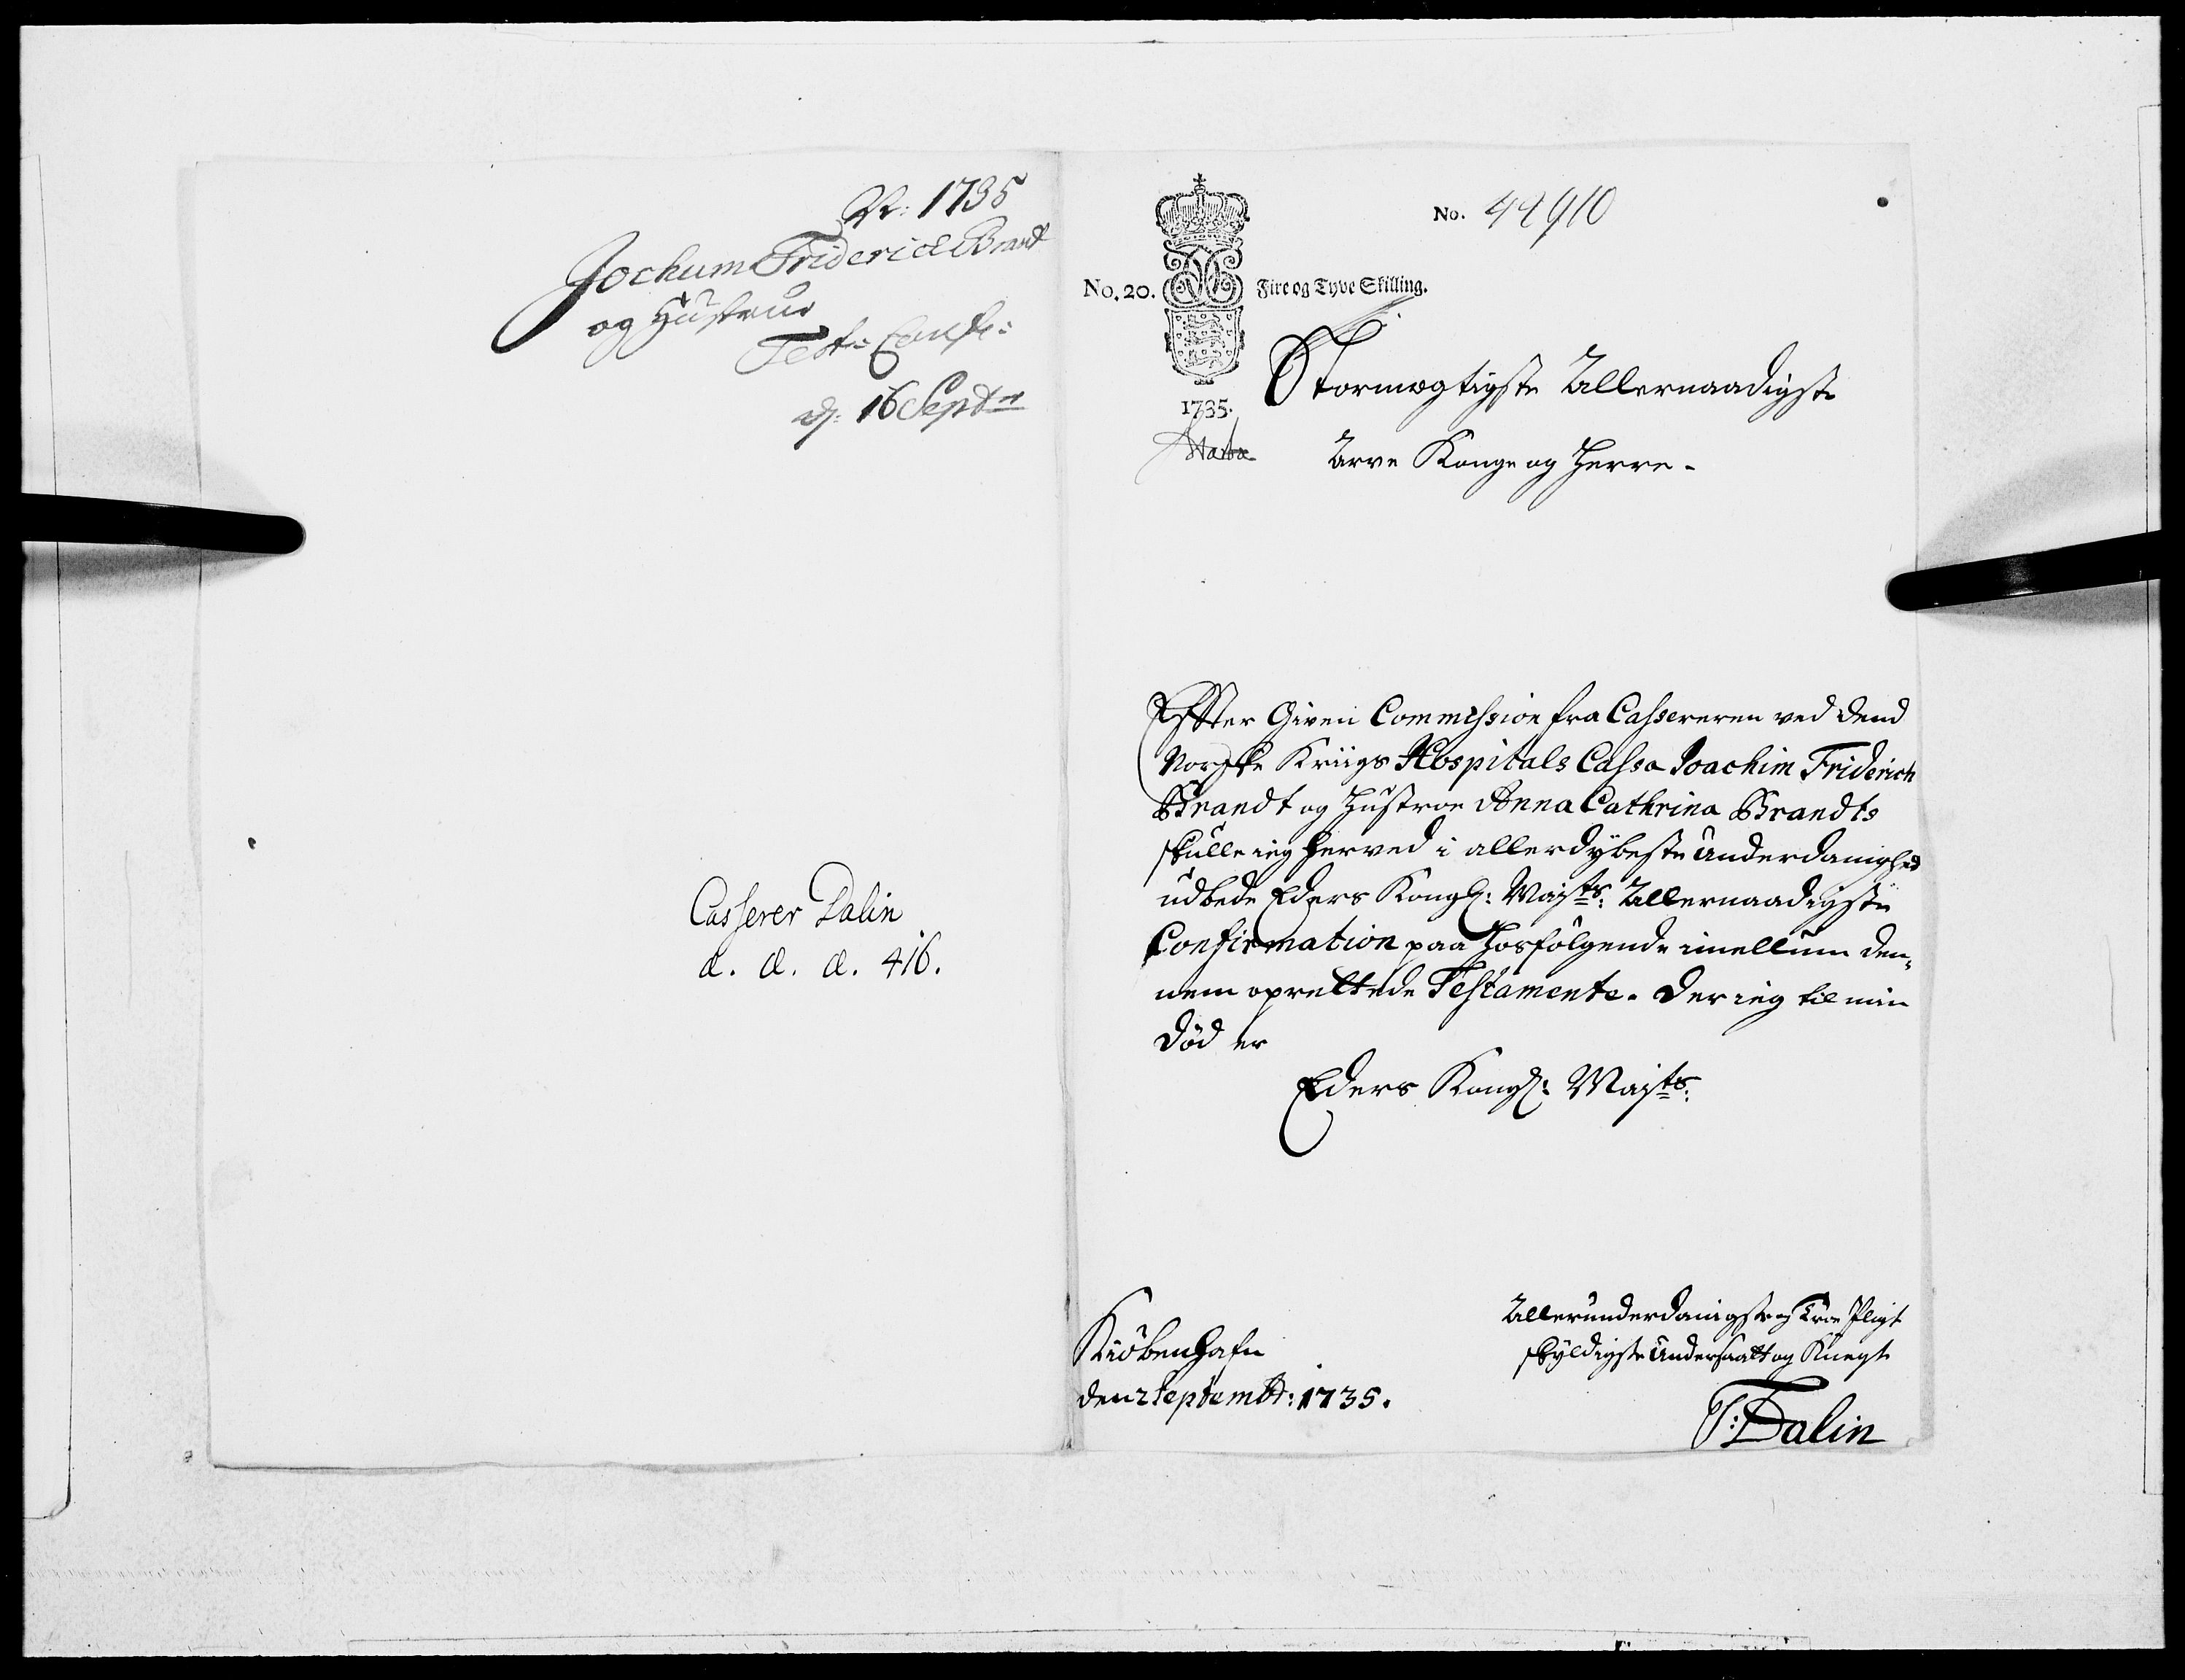 1735
Jochum Friderich Brandt
og Hustrue
Test: Confir:
d: 16 Septr
Casserer Dalin
d. d. d. 416.
No. 44910
No. 20. Fire og Tyve Skilling.
1735.
Stormægtigste Allernaadigste
Arve Konge og Herre.
Effter Given Commission fra Cassereren ved dend
Norske Kriigs Hospitals Cassa Joachim Friderich
Brandt og Hustroe Anna Cathrina Brandts
skulle ieg herved i allerdÿbeste Underdanighed
udbede Eders Kongl: Majts: Allernaadigste
Confirmation paa hosfølgende imellum den-
nem oprettede Testamente. der ieg til min
død er
Eders Kongl: Majts:
Kiøbenhafn
den 2 Septembr: 1735.
Allerunderdanigste og Troe Pligt
skÿldigste Undersaatt og Knegt
T: Dalin